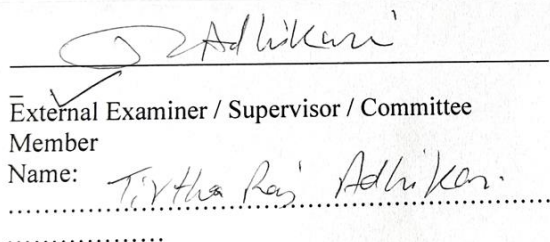 Adhikari
External Examiner / Supervisor / Committee
Member
Name: Tirtha Raj Adhikari.